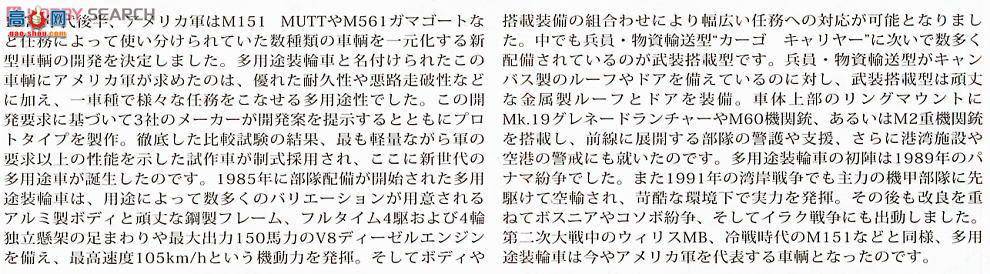 代後半、アメリカ軍はM151 MUTTやM561ガマゴートな
ど任務によって使い分けられていた数種類の車輌を一元化する新
型車輌の開発を決定しました。多用途装輪車と名付けられたこの
車輌にアメリカ軍が求めたのは、優れた耐久性や悪路走破性など
に加え、一車種で様々な任務をこなせる多用途性でした。この開
発要求に基づいて3社のメーカーが開発案を提示するとともにプロ
トタイプを製作。徹底した比較試験の結果、最も軽量ながら軍の
要求以上の性能を示した試作車が制式採用され、ここに新世代の
多用途車が誕生したのです。1985年に部隊配備が開始された多用
途装輪車は、用途によって数多くのバリエーションが用意される
アルミ製ボディと頑丈な鋼製フレーム、フルタイム4駆および4輪
独立懸架の足まわりや最大出力150馬力のV8ディーゼルエンジン
を備え、最高速度105km/hという機動力を発揮。そしてボディや
搭載装備の組合わせにより幅広い任務への対応が可能となりまし
た。中でも兵員・物資輸送型“カーゴ キャリヤー”に次いで数多く
配備されているのが武装搭載型です。兵員・物資輸送型がキャン
バス製のルーフやドアを備えているのに対し、武装搭載型は頑丈
な金属製ルーフとドアを装備。車体上部のリングマウントに
Mk.19グレネードランチャーやM60機関銃、あるいはM2重機関銃
を搭載し、前線に展開する部隊の警護や支援、さらに港湾施設や
空港の警戒にも就いたのです。多用途装輪車の初陣は1989年のパ
ナマ紛争でした。また1991年の湾岸戦争でも主力の機甲部隊に先
駆けて空輸され、苛酷な環境下で実力を発揮。その後も改良を重
ねてボスニアやコソボ紛争、そしてイラク戦争にも出動しました。
第二次大戦中のウィリスMB、冷戦時代のM151などと同様、多用
途装輪車は今やアメリカ軍を代表する車輌となったのです。